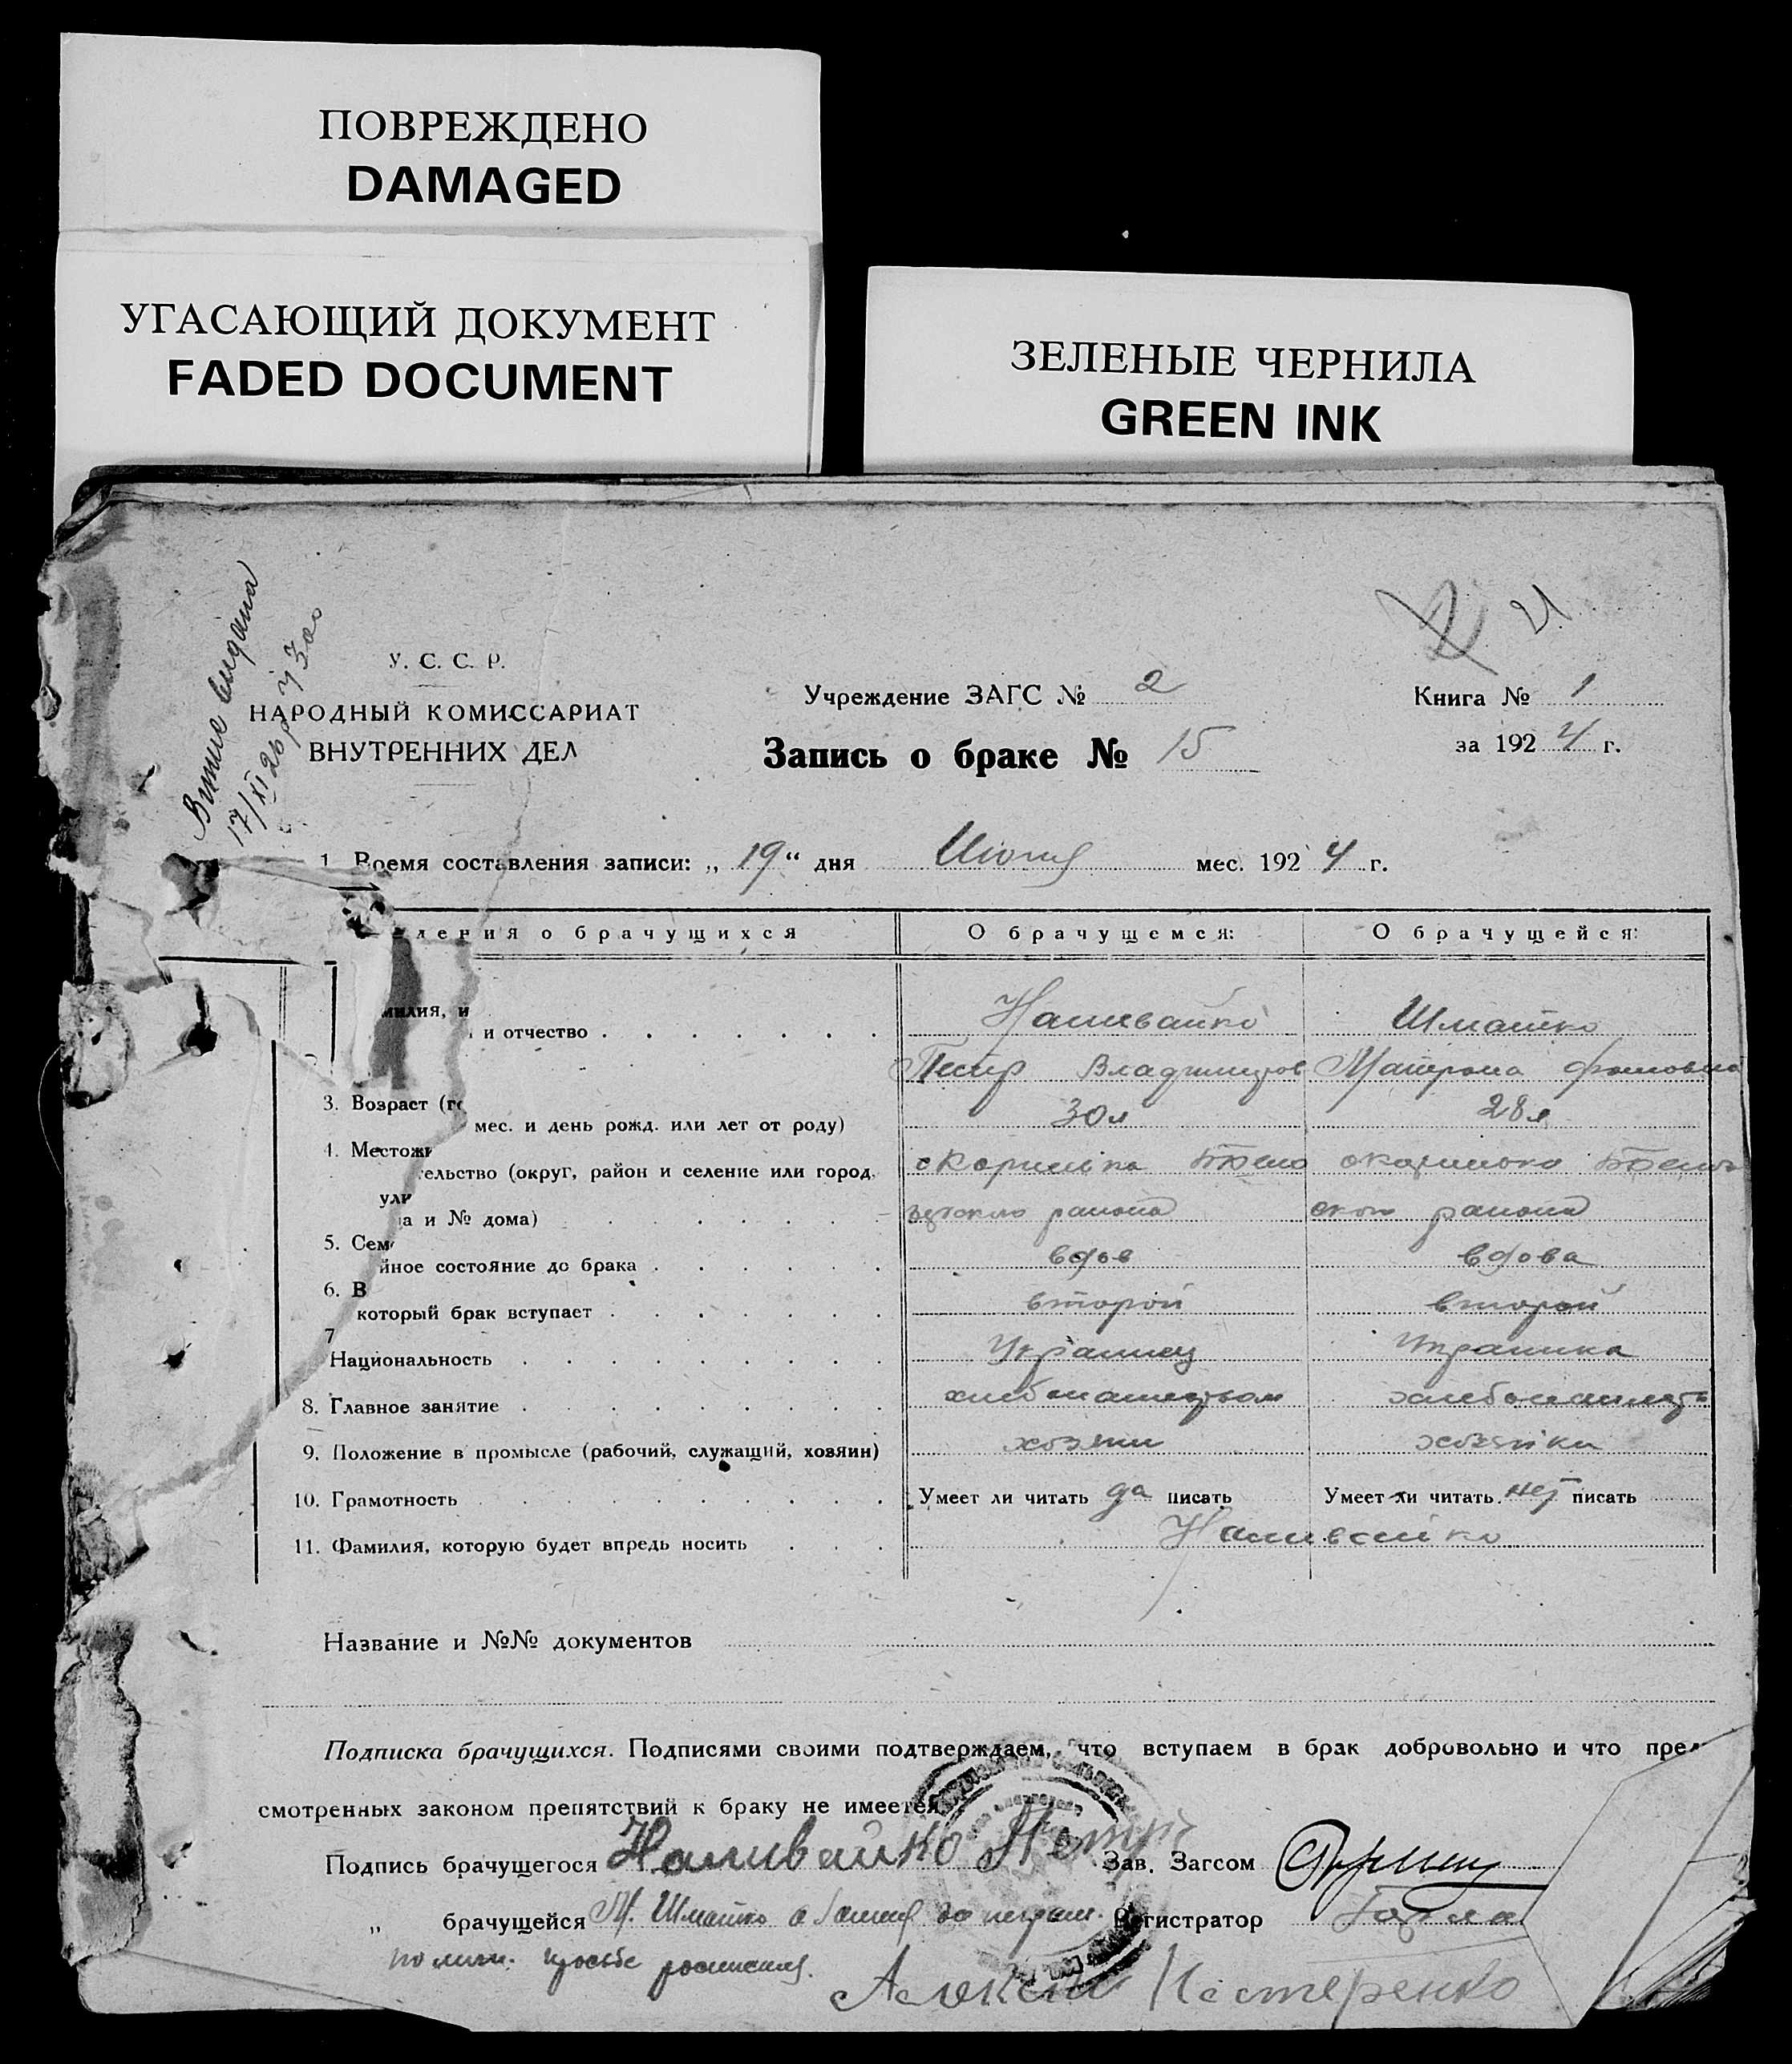 ПОВРЕЖДЕНО
DAMAGED
УГАСАЮЩИЙ ДОКУМЕНТ
FADED DOCUMENT
ЗЕЛЕНЫЕ ЧЕРНИЛА
GREEN INK
21
видана
17/XI 26р
У. С. С. Р.
НАРОДНЫЙ КОМИССАРИАТ
ВНУТРЕННИХ ДЕЛ
Учреждение ЗАГС № 2
Запись о браке № 15
Книга № 1
за 1924 г.
1. Время составления записи: „ 19 “ дня Июня мес. 1924 г.
ления о брачущихся
О брачущемся:
О брачущейся:
милия, и
и отчество
Наливайко
Шматко
Петр Владимиров
Матрона Фомовна
3. Возраст (го
мес. и день рожд. или лет от роду)
30л
28л
4. Местожи
тельство (округ, район и селение или город,
ули
ца и № дома)
района
ского района
5. Семе
йное состояние до брака
вдов
вдова
6. В
который брак вступает
второй
второй
7
Национальность
Украинец
Украинка
8. Главное занятие
9. Положение в промысле (рабочий, служащий, хозяин)
хозяин
хозяйка
10. Грамотность
Умеет ли читать да писать
Умеет ли читать нет писать
11. Фамилия, которую будет впредь носить
Наливайко
Название и №№ документов
Подписка брачущихся. Подписями своими подтверждаем, что вступаем в брак добровольно и что пред
смотренных законом препятствий к браку не имеется.
Подпись брачущегося Наливайко Петр
Зав. Загсом
„ брачущейся М. Шматко а за неграм.
Регистратор
по личн. просьбе росписался
Алексей Нестеренко